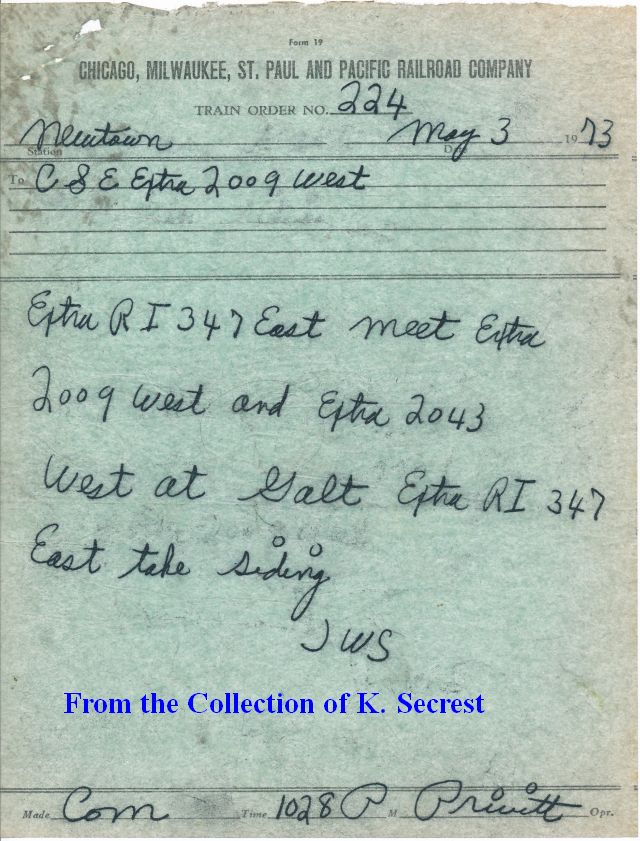 Form 19
CHICAGO, MILWAUKEE, ST. PAUL AND PACIFIC RAILROAD COMPANY
TRAIN ORDER NO. 224
Newtown May 3 1973
Station
To C & E Extra 2009 West
Extra RI 347 East meet Extra
2009 West and Extra 2043
West at Galt Extra RI 347
East take siding
JWS
From the Collection of K. Secrest
Made Com Time 1028 P M Priwitt Opr.